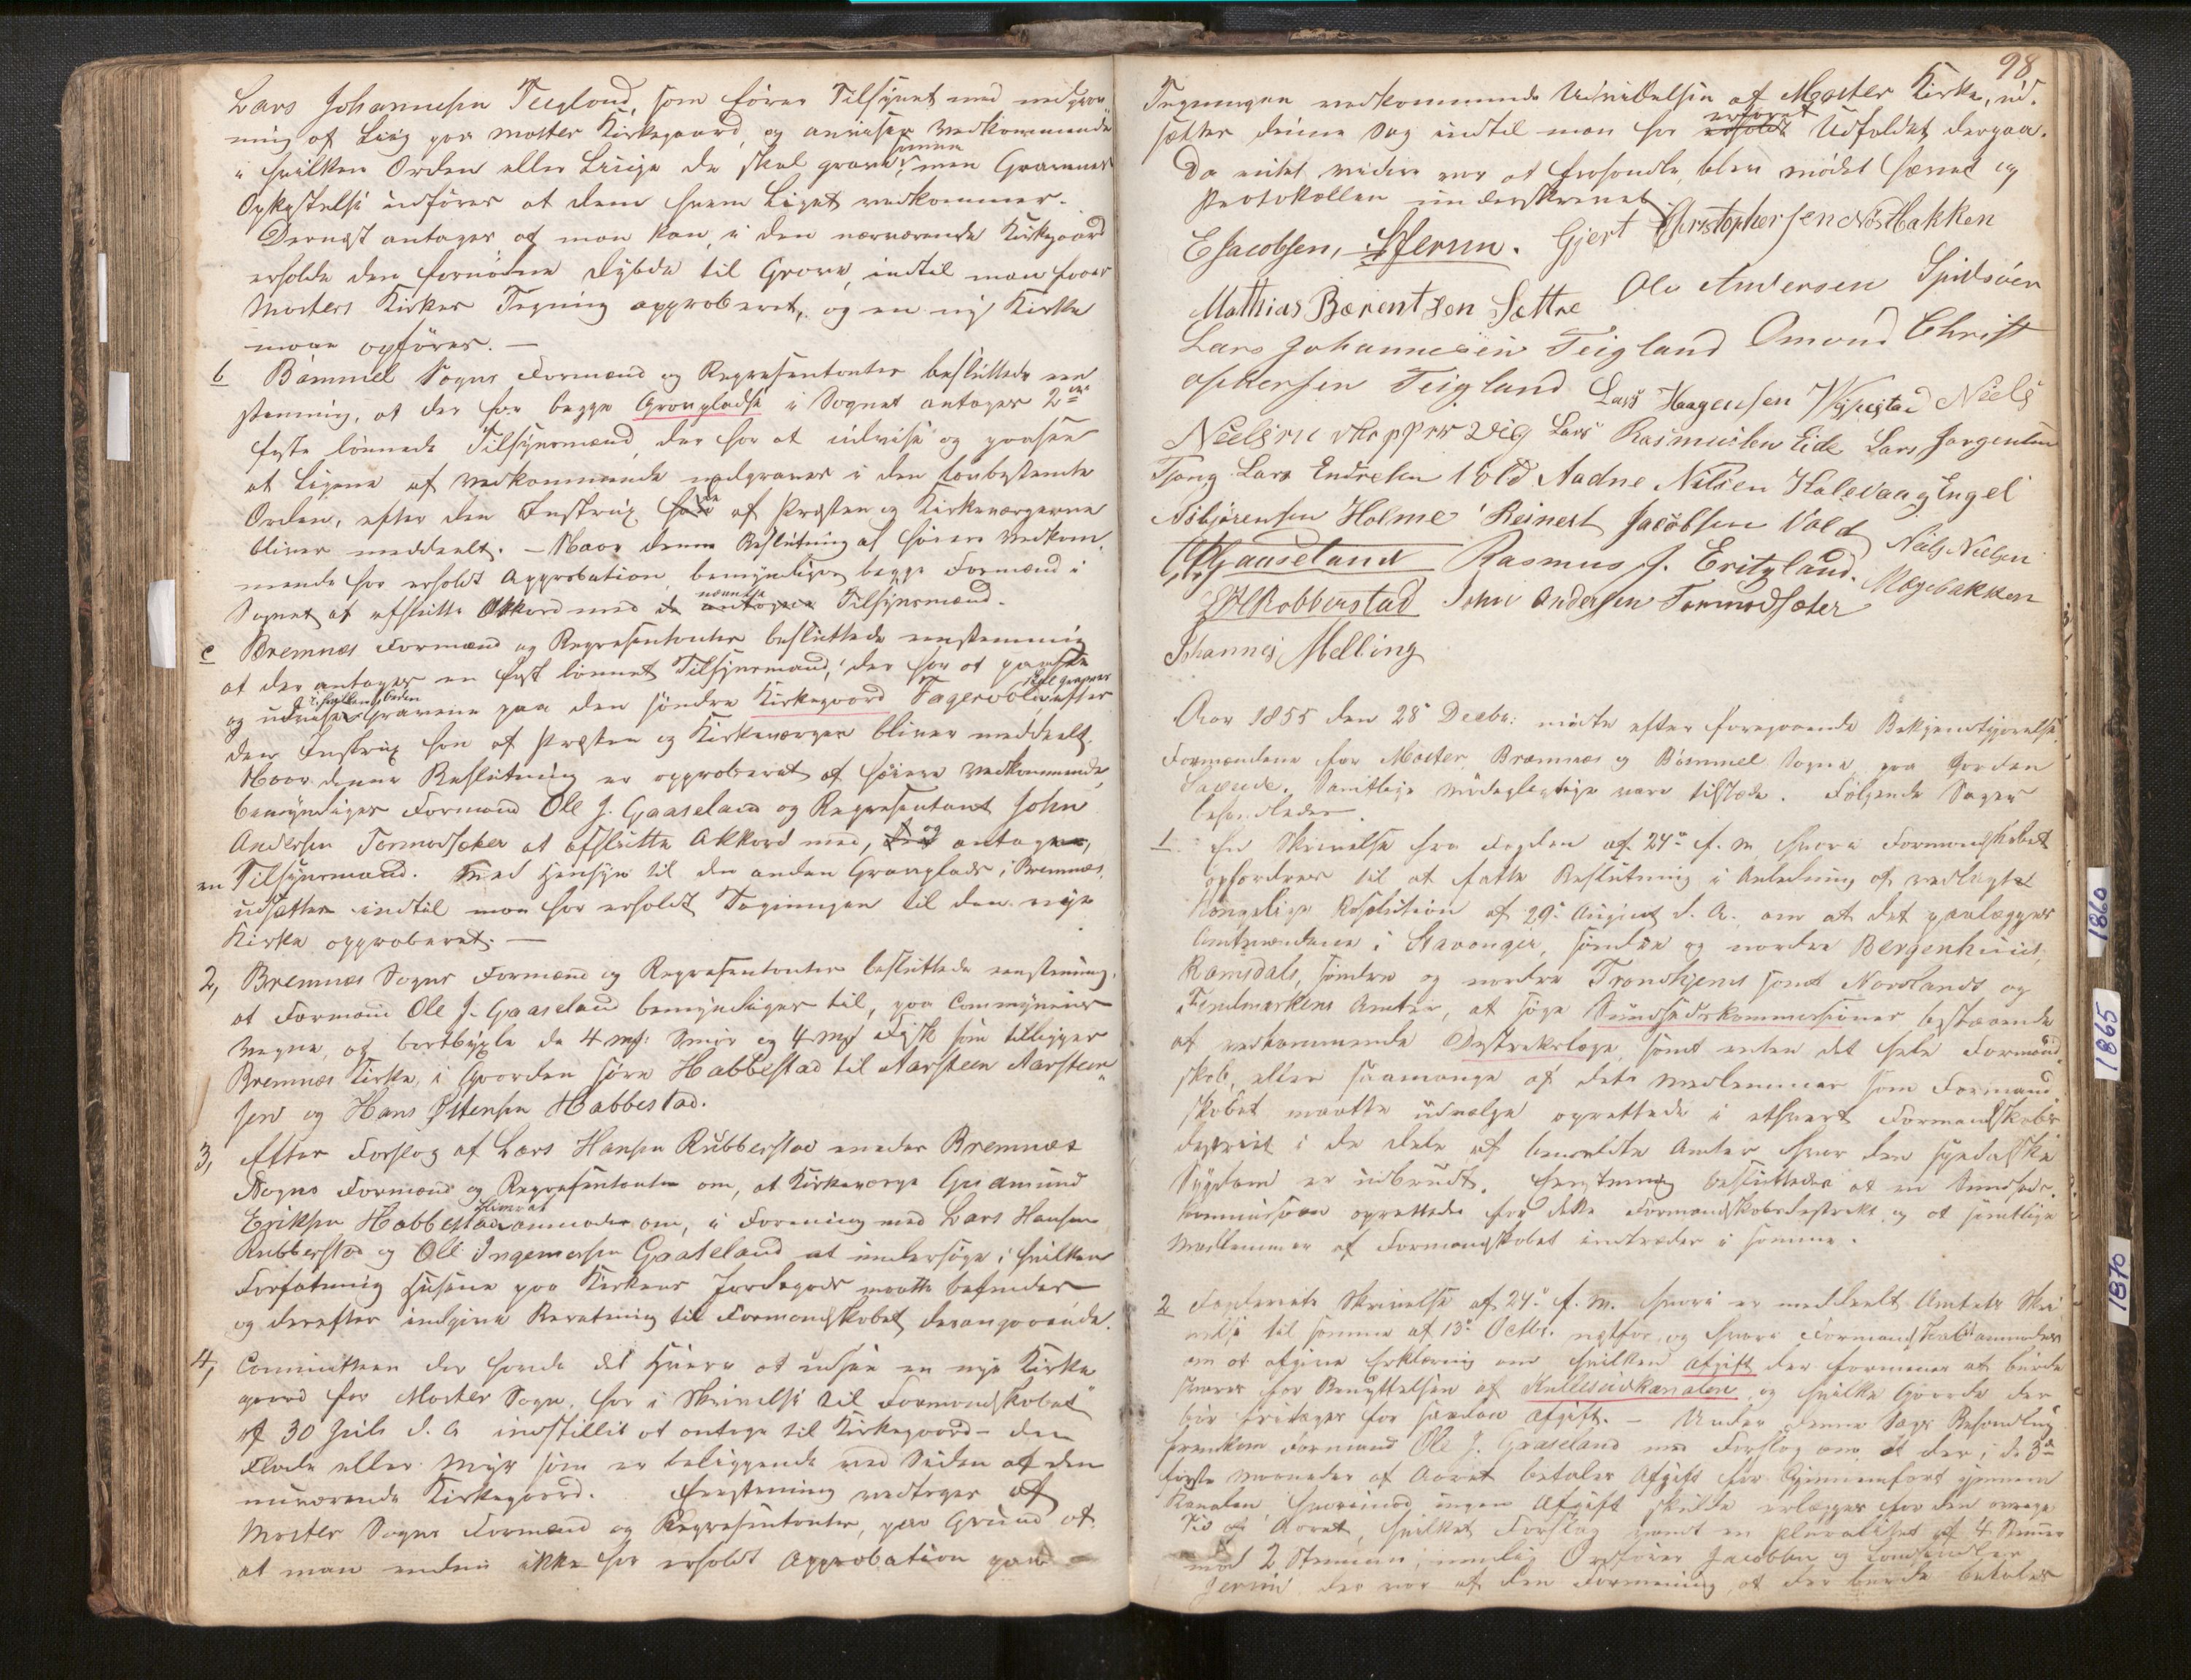 Lars Johannesen Teigland, som fører Tilsynet med nedgrav-
ning af Liig paa Moster Kirkegaard, og anviser Vedkommende
i hvilken Orden eller Linje de skal grave, men Gravenes
Opkastelse udføres af dem hvem Liget vedkommer.
Dernæst antages at man kan i den nærværende Kirkegaard
erholde den fornødne Dybde til Grave, indtil man faaer
Mosters Kirkes Tegning approberet, og en ny Kirke
maae opføres. —
b Bømmel Sogns Formænd og Repræsentanter besluttede een-
stemmig, at der for begge Gravpladse i Sognet antages 2de
faste lønnede Tilsynsmænd, der har at udvise og paasee
at Ligene af Vedkommende nedgraves i den lovbestemte
Orden, efter den Instrux som af Præsten og Kirkeværgerne
bliver meddeelt. – Naar denne Beslutning af høiere Vedkom-
mende har erholdt Approbation, bemyndiges begge Formænd i
Sognet at afslutte Akkord med nævnte Tilsynsmænd.
c Bremnes Formænd og Repræsentanter besluttede eenstemmig
at der antages en fast lønnet Tilsynsmand, der har at paasee
og udvise i hvilken Orden Gravene paa den søndre Kirkegaard Fagervold skal graves efter
den Instrux som af Præsten og Kirkeværgen bliver meddeelt.
Naar denne Beslutning er approberet af høiere Vedkommende,
bemyndiges Formand Ole J. Gaaseland og Repræsentant John
Andersen Tormodsæter at afslutte Akkord med, og antage
en Tilsynsmand. Med Hensyn til den anden Gravplads i Bremnes,
udsættes indtil man har erholdt Tegningen til den nye
Kirke approberet. —
2, Bremnes Sogns Formænd og Repræsentanter besluttede eenstemmig,
at Formand Ole J. Gaaseland bemyndiges til, paa Communens
Vegne, at bortbygle de 4 mrk: Smør og 4 mrk Fisk som tilligger
Bremnes Kirke, i Gaarden søre Habbestad til Aarsteen Aarsteen-
sen og Hans Østensen Habbestad.
3, Efter Forslag af Lars Hansen Rubberstad eenedes Bremnes
Sogns Formænd og Repræsentanter om, at Kirkeværge Gudmund
Eriksen Habbestad anmodes om, i Forening med Lars Hansen
Rubberstad og Ole Ingemorsen Gaaseland at undersøge i hvilken
Forfatning Husene paa Kirkens Jordegods maatte befindes
og derefter indgive Beretning til Formandskabet derangaaende.
4, Committeen der havde det Hverv at udsee en nye Kirke-
gaard for Moster Sogn, har i Skrivelse til Formandskabet
af 30 Juli d. A. indstillet at antage til Kirkegaard – den
Flade eller Myr som er beliggende ved Siden af den
nuværende Kirkegaard. Eenstemmig vedtages af
Moster Sogns Formænd og Repræsentanter, paa Grund af
at man endnu ikke har erholdt Approbation paa
98
Tegningen vedkommende Udvidelsen af Moster Kirke, ud-
sættes denne Sag indtil man har erfaret Udfaldet derpaa.
Da intet videre var at forhandle, blev mødet hævet og
Protokollen underskrevet
E Jacobsen, Gjert Christophersen Nøstbakken
Mathias Bærentzen Sættre Ole Andersen Spidsøen
Lars Johannesen Teigland Omond Christ
ophersen Teigland Lars Haagensen Niels
Nielsen Lars Rasmussen Eide Lars Jørgensen
Tjong Lars Endresen Vold Aadne Nilsen Halevaag Engel
Asbjørensen Holme Reinert Jacobsen Vold
Gaaseland Rasmus J. Eritzland. Niels Nielsen
Robberstad John Andersen Tormodsæter Møgebakken
Johannes Melling
Aar 1855 den 28 Decbr: mødte efter foregaaende Bekjendtgjørelse,
Formændene for Moster, Bremnes og Bømmel Sogne paa Gaarden
Laxende. Samtlige mødepligtige vare tilstede. Følgende Sager
behandledes.
1. En Skrivelse fra Fogden af 24de f. M. hvori Formandskabet
opfordres til at fatte Beslutning i Anledning af vedlagte
Kongelige Resolution af 29de August d. A. om at det paalægges
Amtmændene i Stavanger, søndre og nordre Bergenhuus,
Romsdals, søndre og nordre Trondhjems samt Nordlands og
Findmarkens Amter, at søge Sundhedskommissioner bestaaende
af vedkommende Distriktslæge samt enten det hele Formand-
skab, eller saamange af dets Medlemmer som Formand-
skabet maatte udvælge oprettede i ethvert Formandskabs-
destrict i de dele af bemeldte Amter hvor den spedalske
Sygdom er udbrudt. Eenstemmig besluttedes at en Sundheds-
kommission oprettedes for dette Formandskabsdestrikt og at samtlige
Medlemmer af Formandskabet indtræder i samme.
2 Foederiets Skrivelse af 24de f. M. hvori er meddeelt Amtets Skri-
velse til samme af 13de Octbr. næstfor. og hvori Formandskabet anmodes
om at afgive Erklæring om hvilken Afgift der formenes at burde
svares for Benyttelsen af Kulleseidkanalen og hvilke Gaarde der
bør fritages for saadan Afgift. – Under denne Sags Behandling
fremkom Formand Ole J. Gaaseland med Forslag om at der i de 3de
første Maaneder af Aaret betales Afgift for Gjennemfart gjennem
Kanalen, hvorimod ingen Afgift skulde erlægges for den øvrige
Tid af Aaret, hvilket Forslag vandt en pluralitet af 4 Stemmer
mod 2 Stemmer, nemlig Ordfører Jacobsen og Landhandler
der var af den Formening, at der burde betales
1860
1865
1870